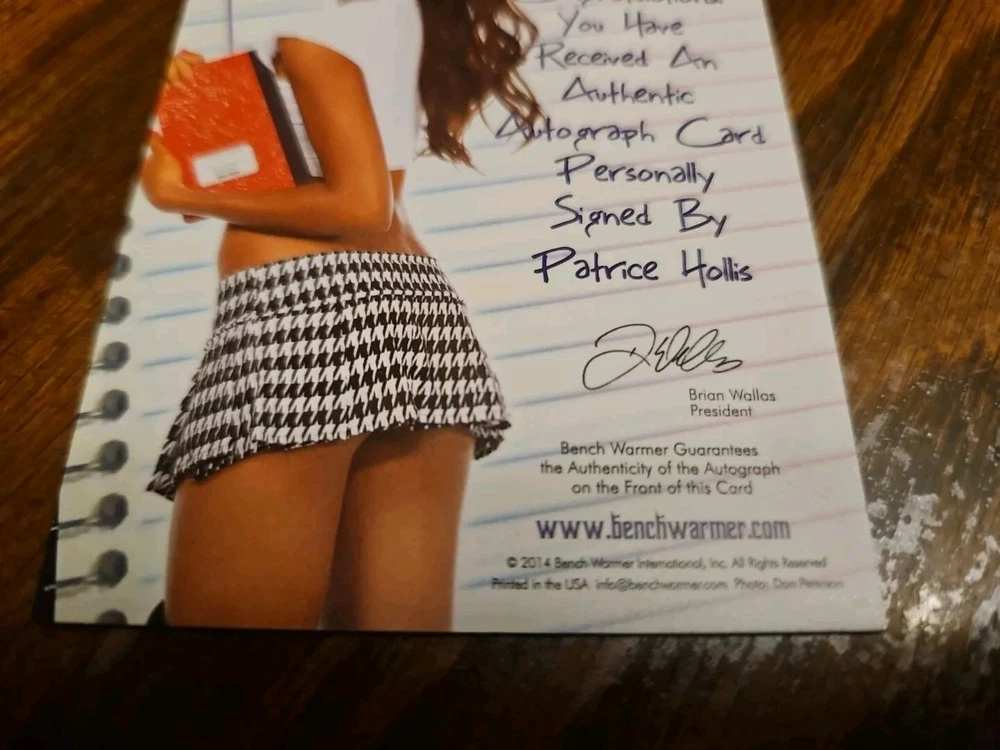 You Have
Received An
Authentic
Autograph Card
Personally
Signed By
Patrice Hollis
Brian Wallos
President
Bench Warmer Guarantees
the Authenticity of the Autograph
on the Front of this Card
www.benchwarmer.com
© 2014 Bench Warmer International, Inc. All Rights Reserved
Printed in the USA info@benchwarmer.com Photo: Don Peterson